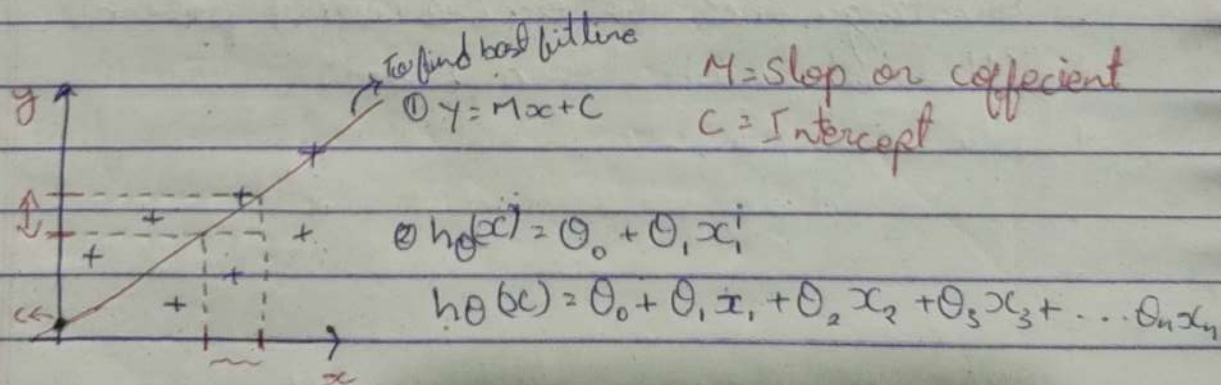 To find best fit line
① y = Mx + C
M = Slop or coffecient
C = Intercept
y
② hθ(x)ⁱ = θ₀ + θ₁x₁ⁱ
hθ(x) = θ₀ + θ₁x₁ + θ₂x₂ + θ₃x₃ + ... θₙxₙ
x